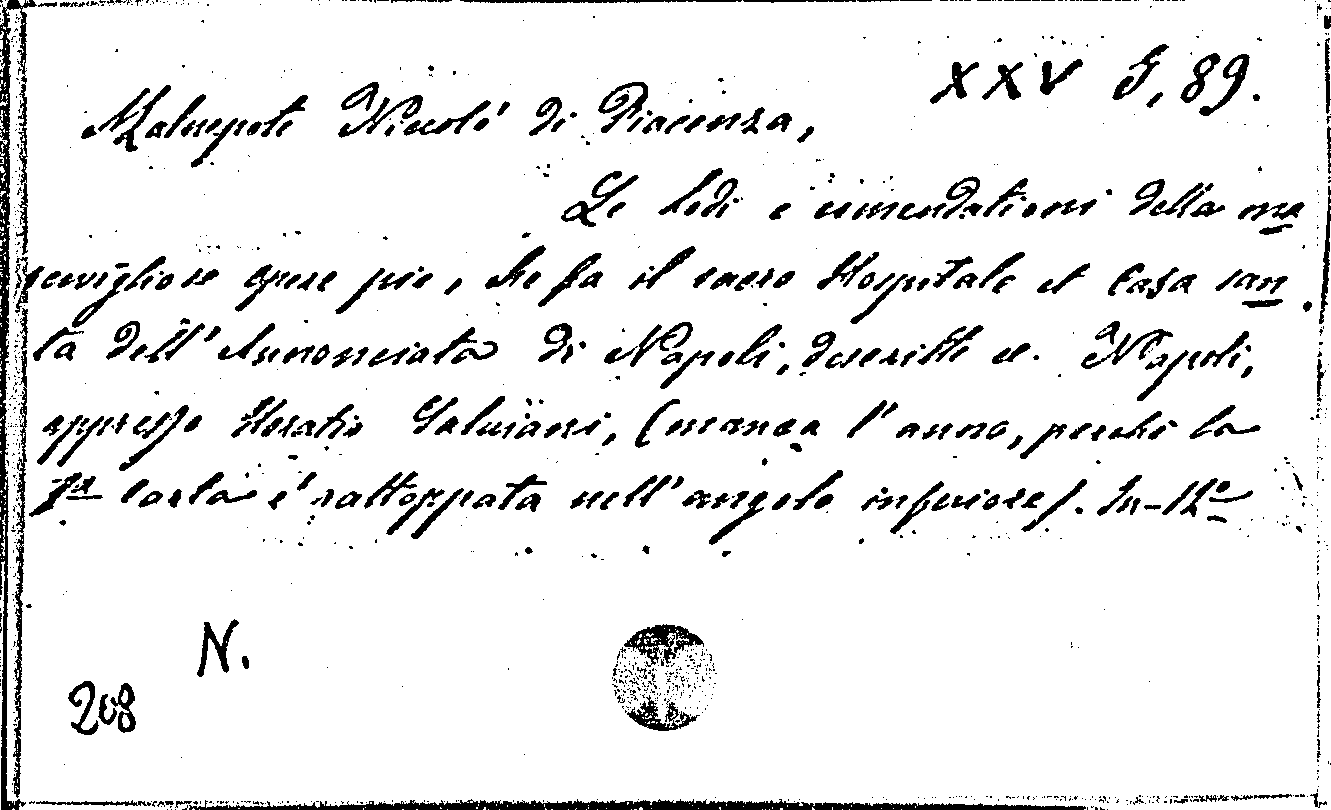 XXV G, 89.
Malnepote Niccolò di Piacenza,
Le lodi e comendationi della ma
ravigliose opere pie, che fa il sacro Hospitale et Casa san
ta dell' Annonciata di Napoli, descritte ec. Napoli,
appresso Horatio Salviani, (manca l'anno, perchè la
1ª carta è rattoppata nell' angolo inferiore). In-12º
N.
208